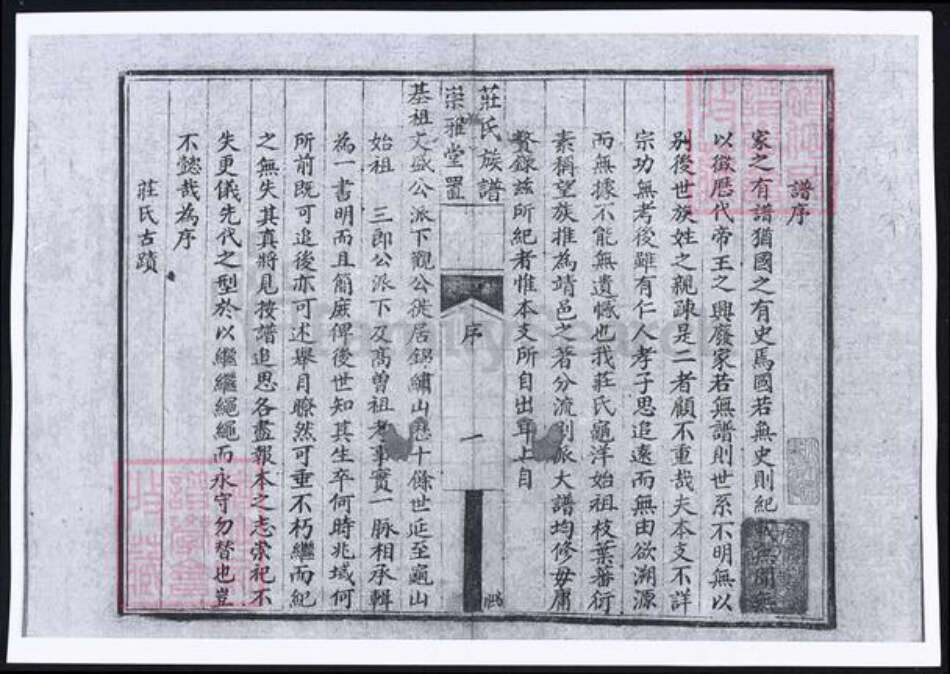 譜序
家之有譜猶國之有史焉國若無史則紀載無聞無
以徵歷代帝王之興廢家若無譜則世系不明無以
別後世族姓之親疎是二者顧不重哉夫本支不詳
宗功無考後雖有仁人孝子思追遠而無由欲溯源
而無據不能無遺憾也我莊氏龜洋始祖枝葉蕃衍
素稱望族推為靖邑之著分流別派大譜均修毋庸
贅錄茲所紀者惟本支所自出耳上自
莊氏族譜
崇雅堂置
序
一
基祖文盛公派下觀公徙居錦繡山歷十餘世延至龜山
始祖 三郎公派下及高曾祖考事實一脉相承輯
為一書明而且簡庶俾後世知其生卒何時兆域何
所前既可追後亦可述舉目瞭然可垂不朽繼而紀
之無失其真將見按譜追思各盡報本之志崇祀不
失更儀先代之型於以繼繼繩繩而永守勿替也豈
不懿哉為序
莊氏古蹟
FamilySearch